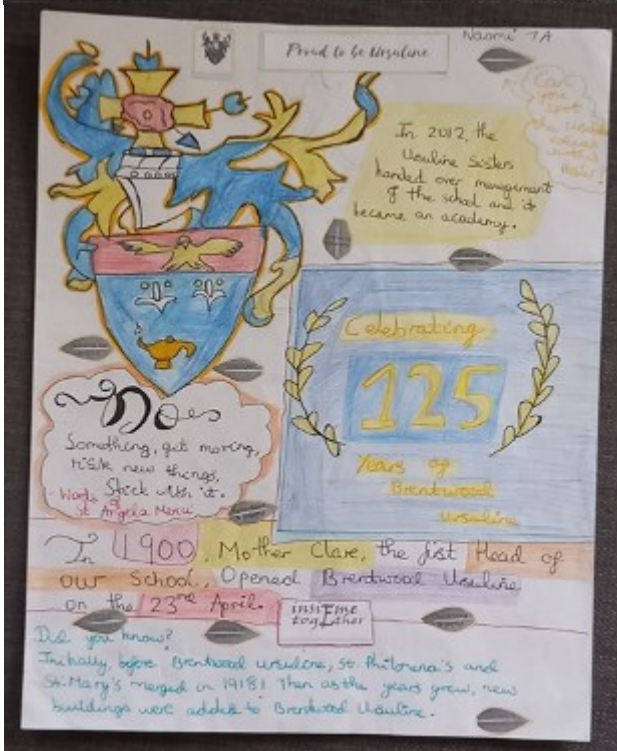 Proud to be Ursuline
Naomi TA
Can
you spot
the Ursuline
In 2012, the
Ursuline Sisters
handed over management
of the school and it
became an academy.
Celebrating
125
Years of
Brentwood
Ursuline
Do
Something, get moving,
risk new things,
Stick with it.
- Words of
St Angela Merici
In 1900, Mother Clare, the first Head of
our School, Opened Brentwood Ursuline
on the 23rd April.
insiEme
togEther
Did you know?
Initially, before Brentwood Ursuline, St. Philomena's and
St. Mary's merged in 1918! Then as the years grew, new
buildings were added to Brentwood Ursuline.